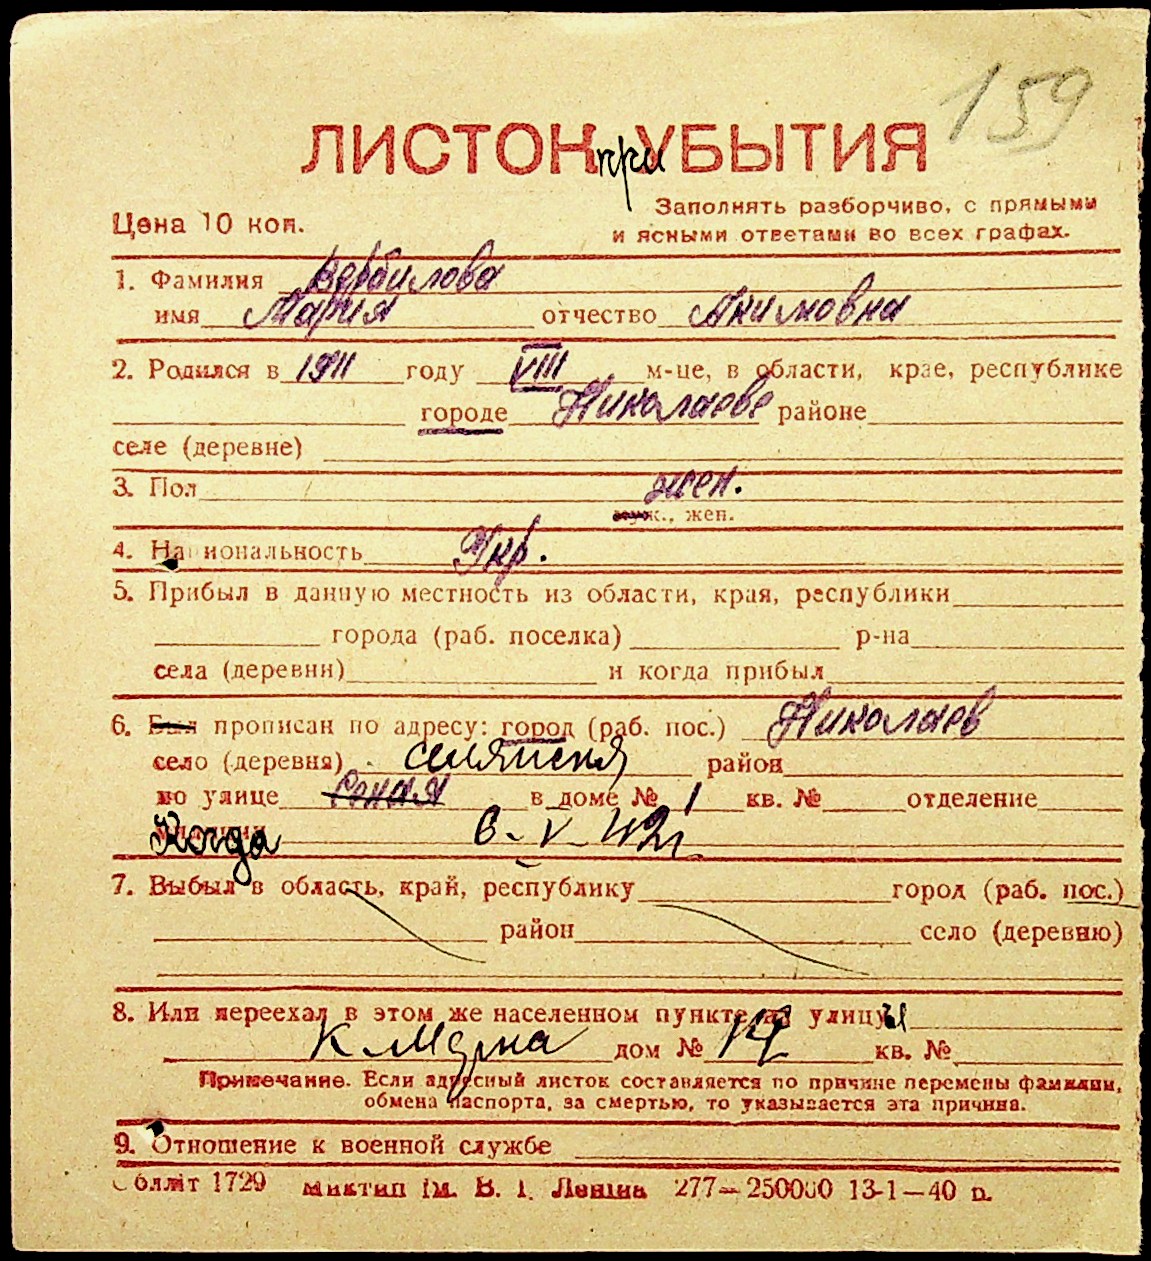 159
ЛИСТОК приУБЫТИЯ
Цена 10 коп.
Заполнять разборчиво, с прямыми
и ясными ответами во всех графах.
1. Фамилия Вербилова
имя Мария отчество Акимовна
2. Родился в 1911 году VIII м-це, в области, крае, республике
городе Николаеве районе
селе (деревне)
3. Пол жен.
муж., жен.
4. Национальность Укр.
5. Прибыл в данную местность из области, края, республики
города (раб. поселка) р-на
села (деревни) и когда прибыл
6. Был прописан по адресу: город (раб. пос.) Николаев
село (деревня) район
по улице в доме № 1 кв. № отделение
Когда 6-V-42 г.
7. Выбыл в область, край, республику город (раб. пос.)
район село (деревню)
8. Или переехал в этом же населенном пункте на улицу
К. Маркса дом № кв. №
Примечание. Если адресный листок составляется по причине перемены фамилии,
обмена паспорта, за смертью, то указывается эта причина.
9. Отношение к военной службе
Обллiт 1729 Миктип iм. В. I. Ленiна 277—250000 13-1—40 р.